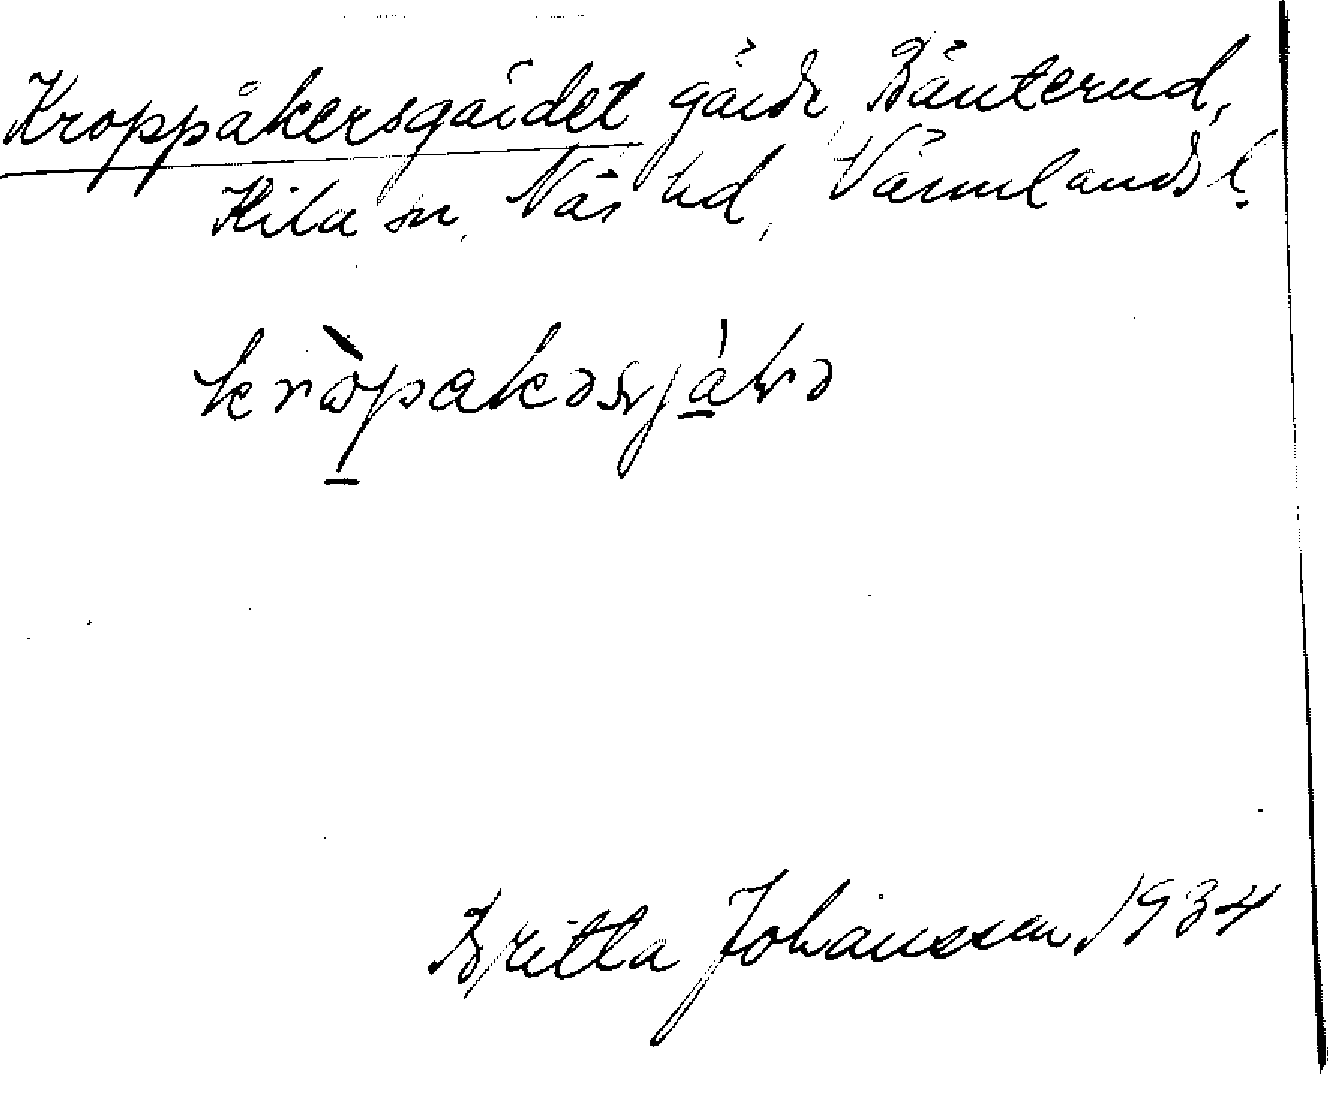 Kroppåkersgärdet gärde, Bänterud,
Kila sn, Näs hd, Värmlands l.
Britta Johansson 1934